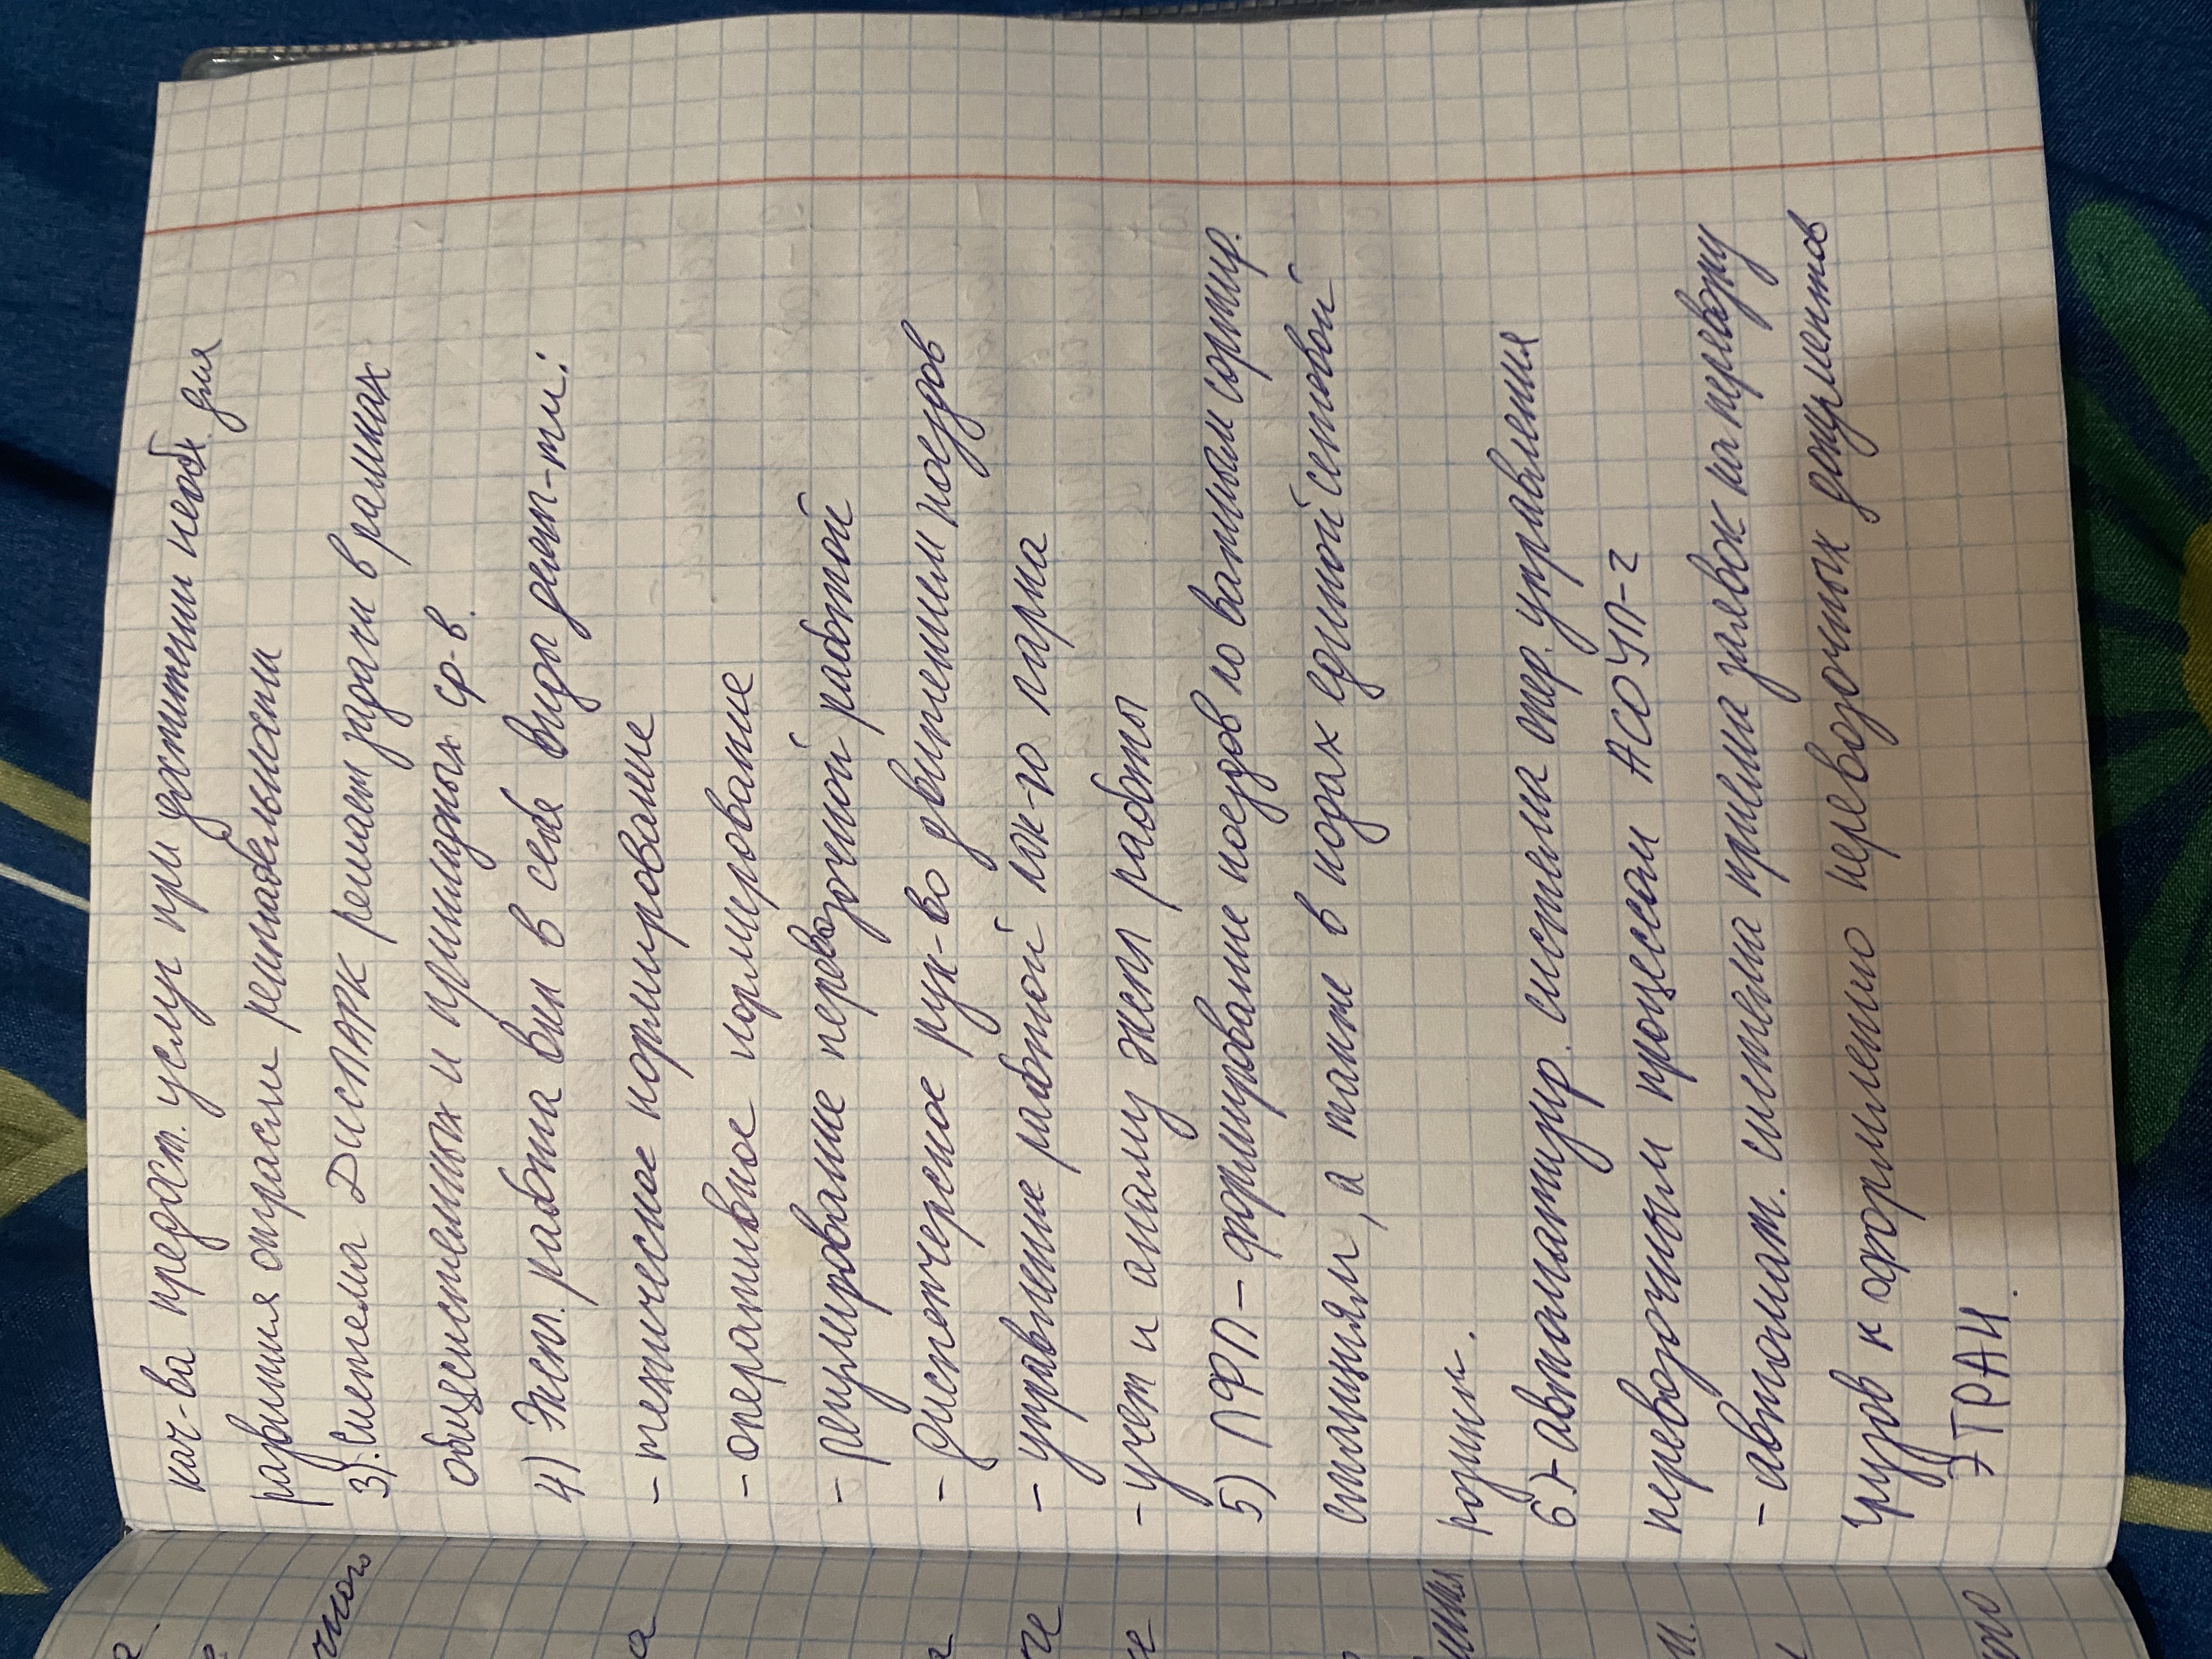 кач-ва предост. услуг при достижении необх. для
развития отрасли рентабельности
3). Система ДИСПАРК решает задачи в рамках
общесистемных и прикладных ср-в.
4) Эксп. работа вкл в себя виды деят-ти:
- техническое нормирование
- оперативное нормирование
- регулирование перевозочной работой
- диспетчерское рук-во движением поездов
- управление работой лок-го парка
- учет и анализ эксп работы
5) ПФП - формирование поездов по важным сортир.
станциям, а также в кодах единой сетевой
розетк.
6)- автоматизир. система опер. управления
перевозочным процессом АСОУП-2
- автомат. система приема заявок на перевозку
грузов к оформлению перевозочных документов
ЭТРАН.